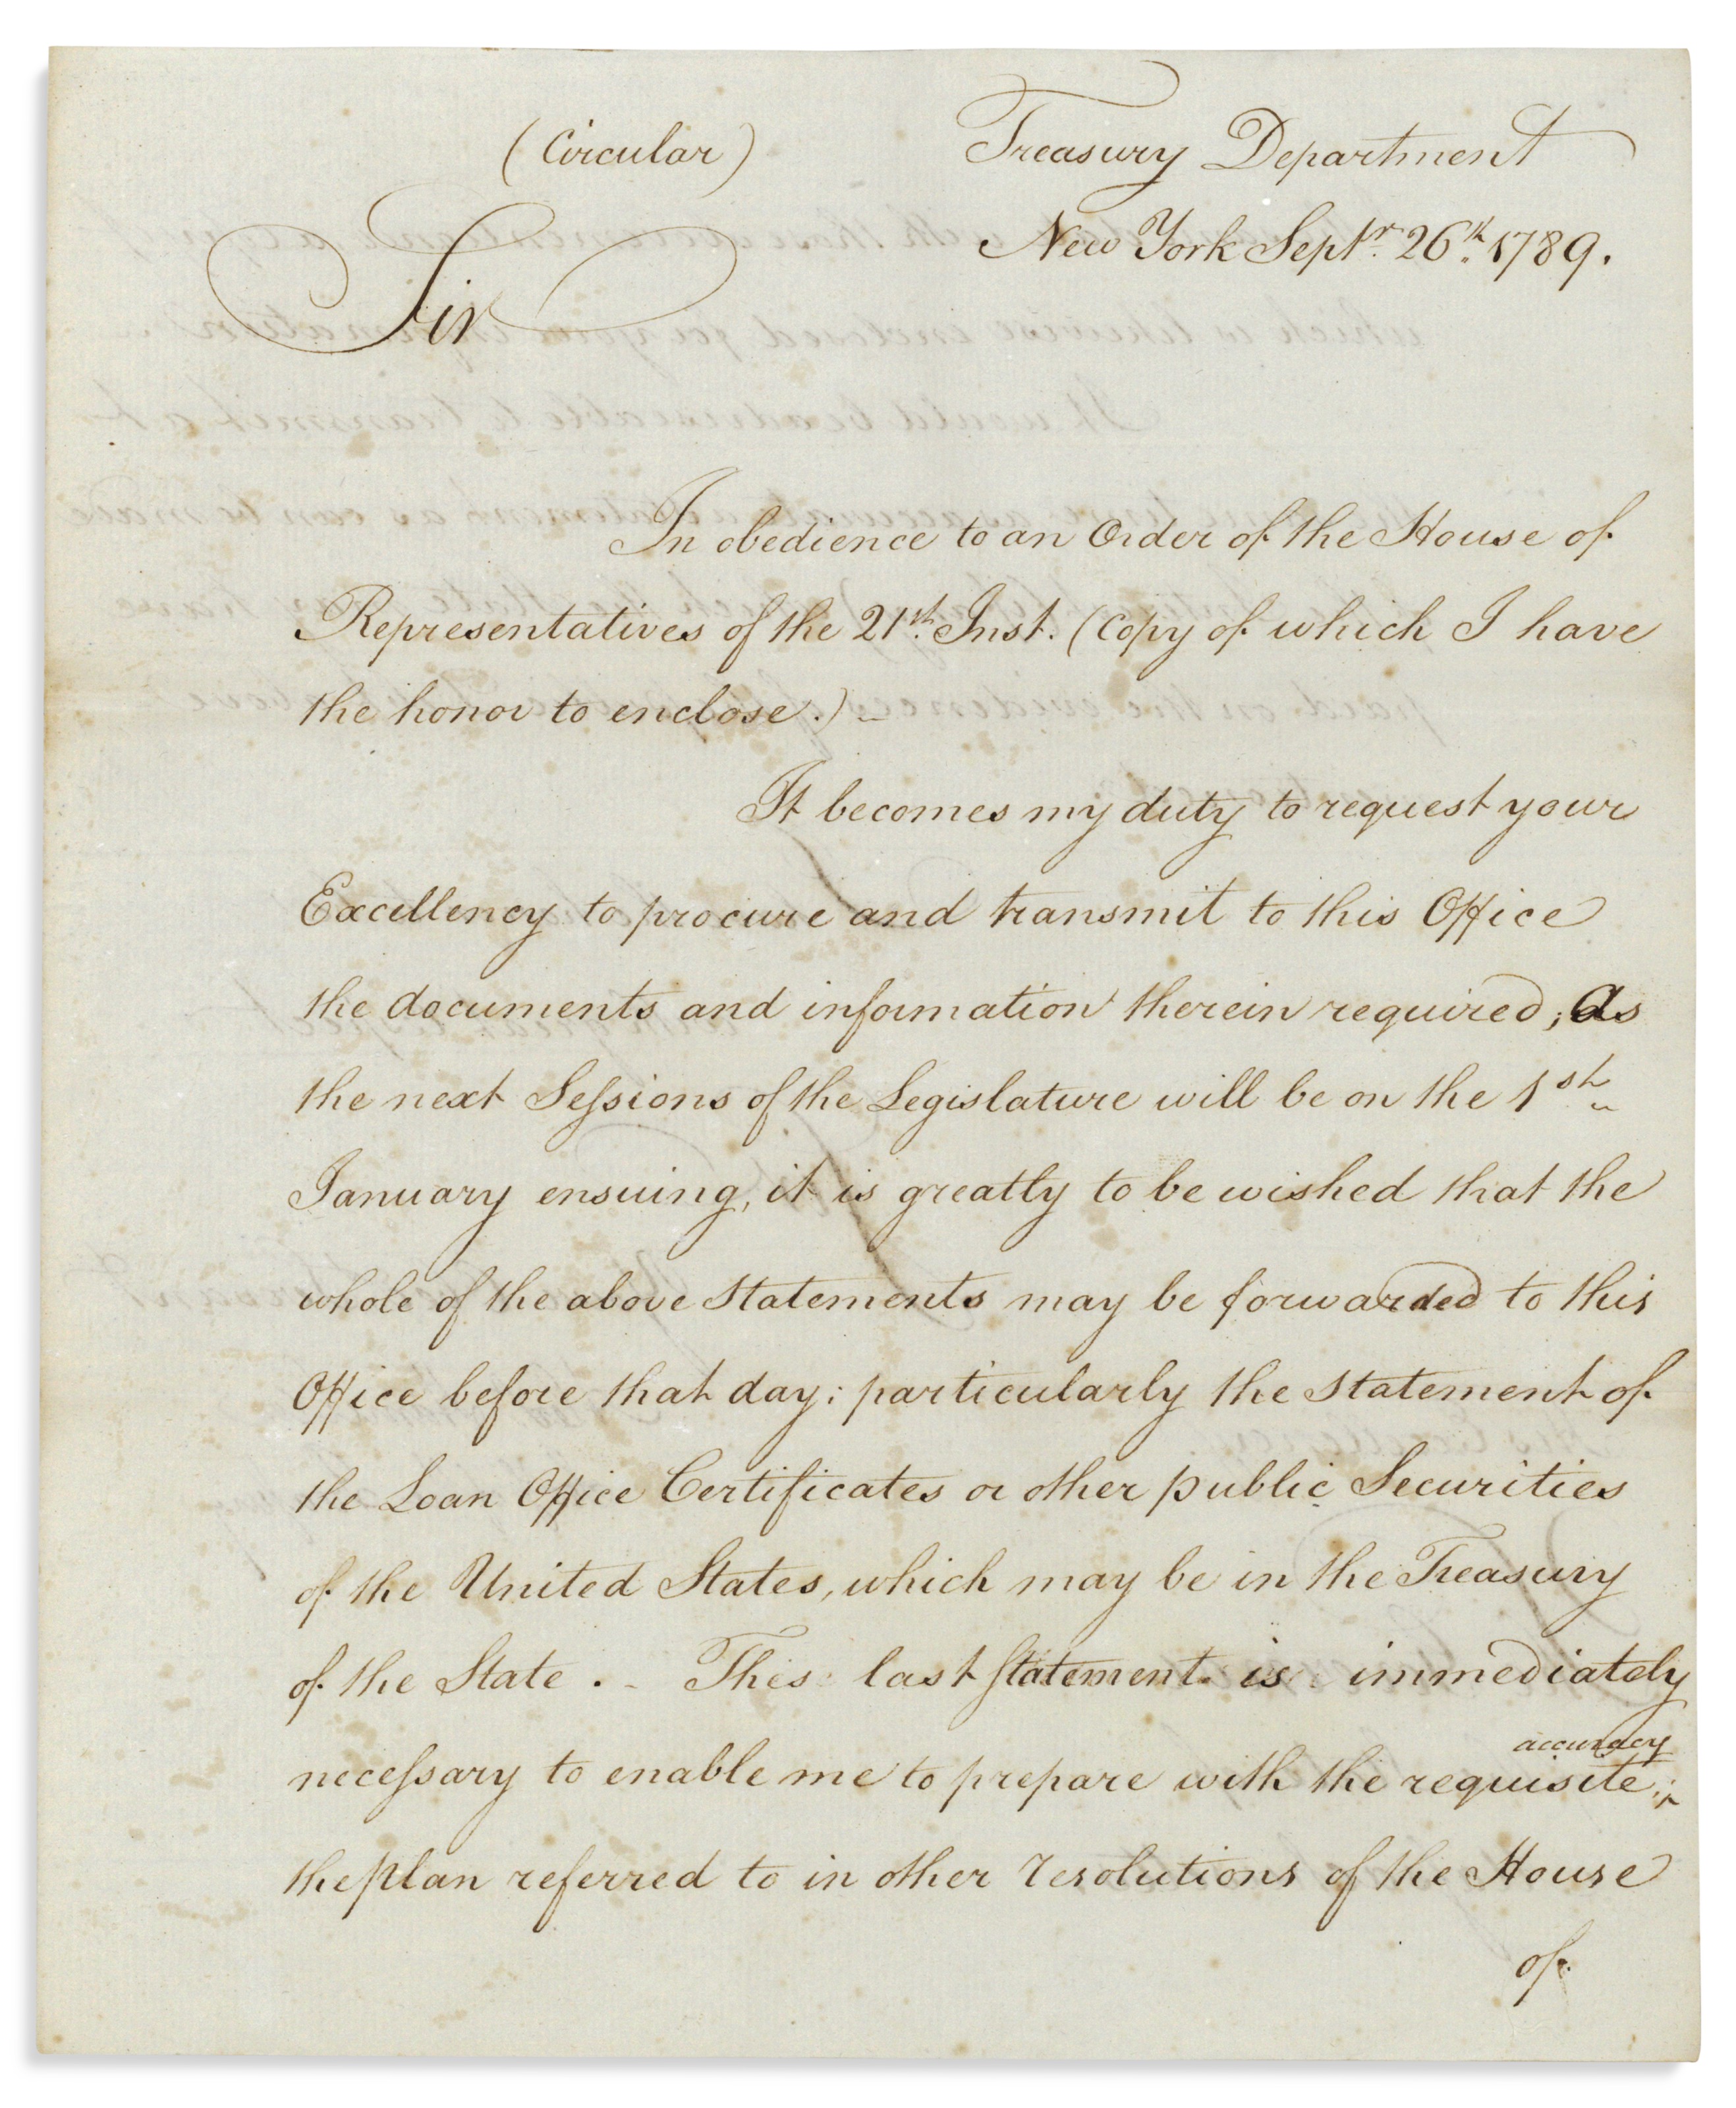 (Circular)
Treasury Department
New York Septr. 26th. 1789.
Sir
In obedience to an Order of the House of
Representatives of the 21st. Inst. (Copy of which I have
the honor to enclose.) –
It becomes my duty to request your
Excellency to procure and transmit to this Office
the documents and information therein required; As
the next Seſsions of the Legislature will be on the 1st
January ensuing, it is greatly to be wished that the
whole of the above statements may be forwarded to this
Office before that day; particularly the statement of
the Loan Office Certificates or other public Securities
of the United States, which may be in the Treasury
of the State. - This last Statement is immediately
accuracy
neceſsary to enable me to prepare with the requisite,
the plan referred to in other resolutions of the House
of